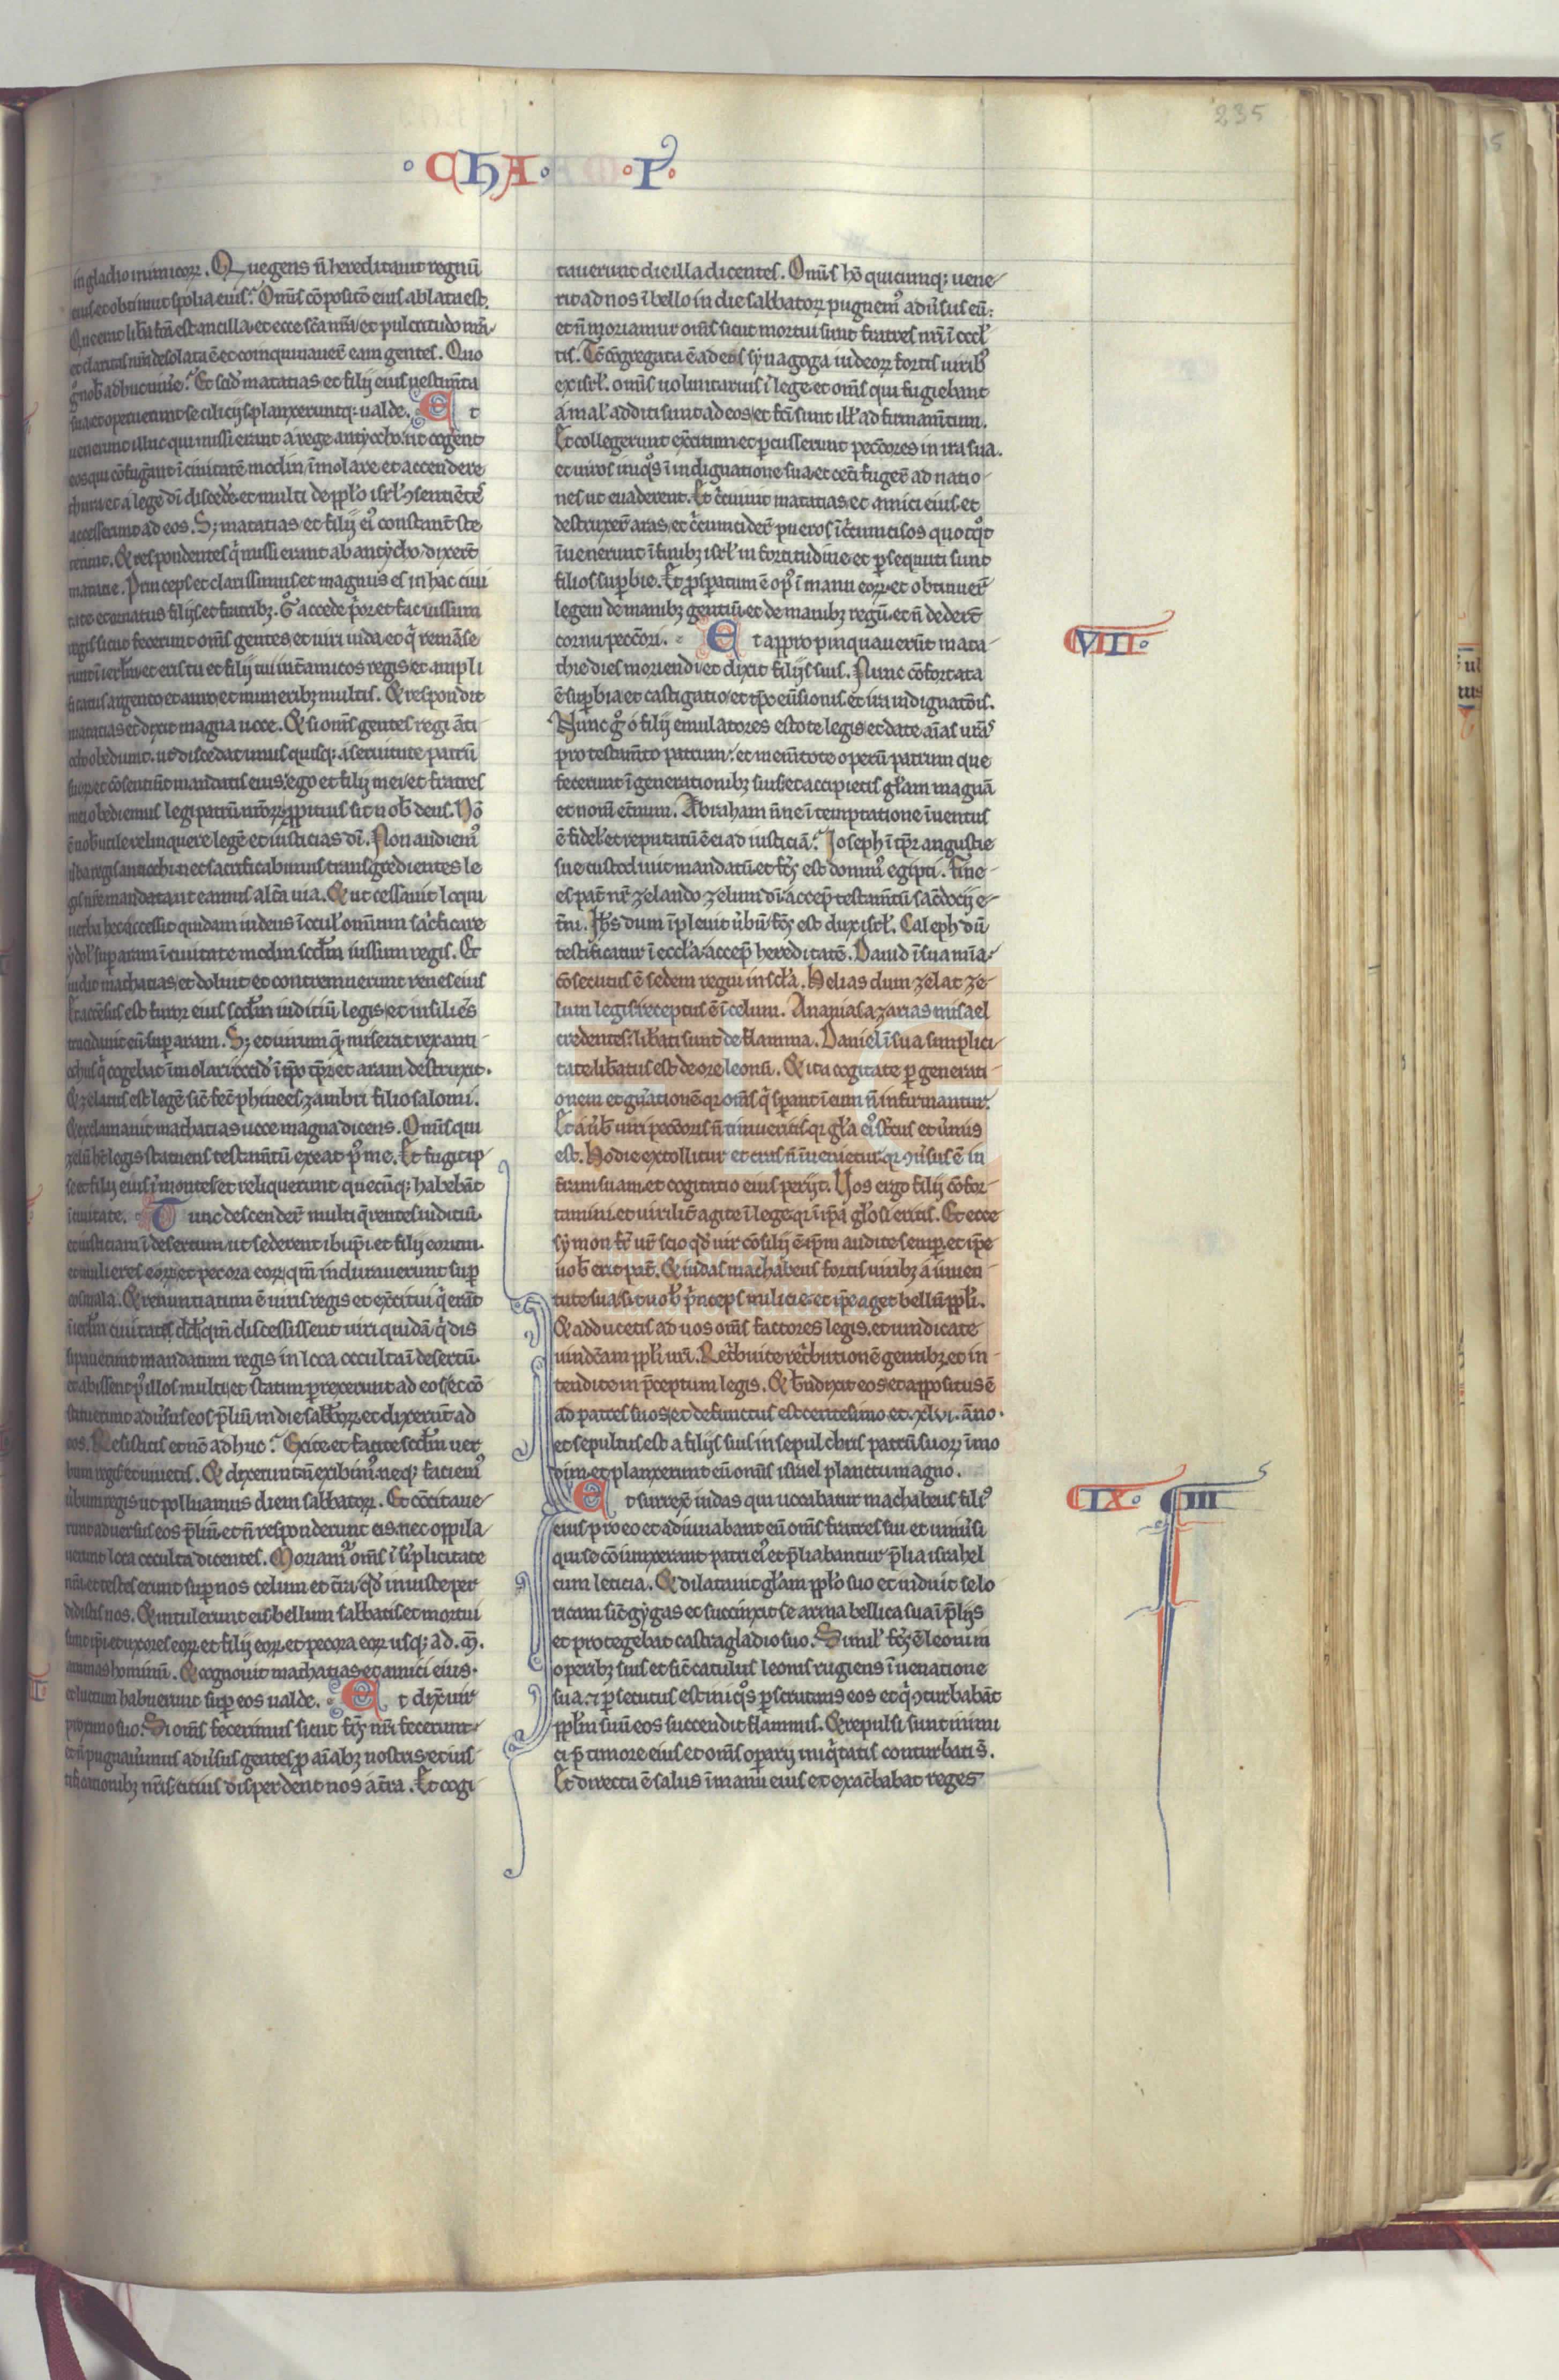 235
· CHA · · P ·
in gladio inimicoꝝ. Que gens ñ hereditauit regnũ
eius et obtinuit spolia eius? Om̃is cõpositõ eius ablata est.
Que erat lib̃a fc̃a est ancilla. et ecce sc̃a nr̃a et pulcritudo nr̃a
et claritas nr̃a desolata ẽ et coinquinauer̃t eam gentes. Quo
g̊ nob̃ adhuc uiuẽ? Et scid̃ matatias et filij eius uestim̃ta
sua et operuerunt se cilicijs planxeruntq; ualde. Et
uenerunt illuc qui missi erant a rege antyocho. ut cogẽnt
eos qui cõfugãnt ĩ ciuitatẽ modin ĩmolare et accendere
thura et a lege dĩ discedẽ. et multi de pp̃lo isrł ↄsentiẽtes
accesserunt ad eos. S; matatias et filij eỉ constant̃ ste
terunt. Et respondentes q̃ missi erant ab antycho. dixer̃t
matatie. Princeps et clarissimus et magnus es in hac ciui
tate et ornatus filijs et fratribꝫ. G̊ accede p̃or et fac iussum
regis sicut fecerunt om̃s gentes et uiri iuda et q̃ remãse
runt ĩ ierłm et eris tu et filij tui int̃ amicos regis et ampli
ficatus argento et auro et muneribꝫ multis. Et respondit
matatias et dixit magna uoce. Et si om̃s gentes regi ãti
ocho obediunt. ut discedat unus quisq; a seruitute patrũ
suoꝝ et cõsentiũt mandatis eius. ego et filij mei et fratres
mei obediemus legi patrũ nr̃oꝝ. ppitius sit nob̃ deus. Nõ
ẽ nob̃ utile relinquere legẽ et iusticias dĩ. Non audiem᷒
ũba regis antiochi. nec sacrificabimus transgredientes le
gis nr̃e mandata ut eamus alt̃a uia. Et ut cessauit loqui
uerba hec accessit quidam iudeus ĩ oculł omnium sac̃ficare
ydoł sup aram ĩ ciuitate modin scđm iussum regis. Et
uidit machatias et doluit et contremuerunt renes eius
Et accẽsus est furor eius scđm iuditiũ legis. et insiliẽs
trucidauit eũ sup aram. S; et uirum q̃ miserat rex anti-
ochus q̃ cogebat ĩmolari occid̃ ĩ ip̃o tp̃re et aram destruxit.
Et zelatus est legẽ sic̃ fec̃ phinees zambri filio salomi.
Et exclamauit machatias uoce magna dicens. Om̃is qui
zelũ h̃t legis statuens testam̃tũ exeat p̃ me. Et fugit ip̃
se et filij eius ĩ montes et reliquerunt quecũq; habebãt
ĩ ciuitate. Tunc descender̃ multi q̃rentes iuditiũ
et iusticiam ĩ desertum. ut sederent ibi ip̃i. et filij eorum.
et mulieres eoꝝ et pecora eoꝝ. qm̃ indurauerunt sup
eos mala. Et renuntiatum ẽ uiris regis et exc̃itui q̃ erãt
ĩ ierłm ciuitatis dd̃. qm̃ discessissent uiri quidã q̃ dis
sipauerunt mandatum regis in loca occulta ĩ desertũ.
et abissent p̃ illos multi. et statim prexerunt ad eos et cõ
stituerunt adũsus eos p̃liũ. in die sabb̃oꝝ. et dixerũt ad
eos. Resistitis et nõ ad huc? Exite et facite scđm uer
bum regis et uiuetis. Et dixerunt ñ exibim᷒ neq; faciem᷒
ũbum regis ut polluamus diem sabbatoꝝ. Et cõcitaue
runt aduersus eos p̃liũ. et ñ responderunt eis. nec oppila
uerunt loca occulta dicentes. Moriam᷒ om̃s ĩ sĩplicitate
nr̃a. et testes erunt sup nos celum et t̃ra. qđ iniuste per
didistis nos. Et intulerunt eis bellum sabbatis. et mortui
sunt ip̃i. et uxores eoꝝ. et filij eoꝝ. et pecora eoꝝ usq; ad. m̃.
animas hominũ. Et cognouit machatias et amici eius.
et luctum habuerunt sup eos ualde. Et dix̃ uir
proximo suo. Si om̃s fecerimus sicut fr̃s nr̃i fecerunt.
et ñ pugnauimus adũsus gentes p̃ aĩabꝫ nostris et ius-
tificationibꝫ nr̃is. citius disperdent nos a t̃ra. Et cogi
tauerunt die illa dicentes. Om̃is hõ quicumq; uene-
rit ad nos ĩ bello in die sabbatoꝝ pugnem᷒ adũsus eũ:
et ñ moriamur om̃s sicut mortui sunt fratres nr̃i ĩ occł
tis. Tc̃ cõgregata ẽ ad eos synagoga iudeoꝝ fortis uirib᷒
ex isrł. om̃is uoluntarius ĩ lege. et om̃s qui fugiebant
a mał additi sunt ad eos. et fc̃i sunt ilł ad firmam̃tum.
Et collegerunt exc̃itum et p̃cusserunt pecc̃ores in ira sua.
et uiros iniq᷒s ĩ indignatione sua. et cet̃i fuger̃t ad natio-
nes ut euaderent. Et c̃cuiuit matatias et amici eius. et
destruxer̃ aras. et c̃cumcider̃t pueros ĩc̃cumcisos quotq᷒t
ĩuenerunt ĩ finibꝫ isrł in fortitudine. et p̃sequuti sunt
filios sup̃bie. Et p̃sp̃atum ẽ op᷒ ĩ manu eoꝝ. et obtinuer̃t
legem de manibꝫ gentiũ. et de manibꝫ regũ. et ñ deder̃t
cornu pecc̃ori. Et appropinquauerũt mata-
thie dies moriendi et dixit filijs suis. Nunc cõfortata
ẽ sup̃bia et castigatio. et tp̃s euũsionis et ira indignatõis.
Nunc g̊ o filij emulatores estote legis. et date aĩas ur̃as
pro testam̃to patrum. et mem̃tote operũ patrum que
fecerunt ĩ generationibꝫ suis. et accipietis głam magnã
et nom̃ et̃num. Abraham ñne ĩ temptatione ĩuentus
ẽ fidel̃. et reputatũ ẽ ei ad iusticiã? Joseph ĩ tp̃r angustie
sue custodiuit mandatũ. et fc̃s est domin᷒ egipti. Fine-
es pat̃ nr̃ zelando zelum dĩ. accep̃ testam̃tũ sac̃docij e-
t̃ni. Ih̃s dum ĩpleuit ũbũ. fc̃s est dux isrł. Caleph dũ
testificatur ĩ eccła. accep̃ hereditatẽ. Dauid ĩ sua mĩa.
cõsecutus ẽ sedem regni in scła. Helias dum zelat ze-
lum legis. receptus ẽ ĩ celum. Ananias azarias misael
credentes. lib̃ati sunt de flamma. Daniel ĩ sua simplici-
tate lib̃atus est de ore leonũ. Et ita cogitate p generati-
onem et gñationẽ. qꝛ om̃s q̃ sperant ĩ eum ñ infirmantur.
Et a ũb̃ uiri pecc̃oris ñ timueritis. qꝛ gła ei᷒ sterc᷒ et ũmis
est. Hodie extollitur et cras ñ ĩuenietur. qꝛ ↄũsus ẽ in
t̃ram suam. et cogitatio eius perijt. Uos ergo filij cõfor-
tamini. et uirilit̃ agite ĩ lege. qꝛ ĩ ip̃a głosi eritis. Et ecce
symon fr̃ ur̃ scio qđ uir cõsilij ẽ. ip̃m audite semp. et ip̃e
uob̃ erit pat̃. Et iudas machabeus fortis uiribꝫ a iuuen-
tute sua. sit uob̃ p̃nceps milicie. et ip̃e aget bellũ pp̃li.
Et adducetis ad uos om̃s factores legis. et uindicate
uindc̃am pp̃li ur̃i. Ret̃buite ret̃butionẽ gentibꝫ. et in-
tendite in p̃ceptum legis. Et b̃ndixit eos et appositus ẽ
ad patres suos. et defunctus est centesimo et. xlvi. ãno.
et sepultus est a filijs suis in sepulchris patrũ suoꝝ ĩ mo
dim. et planxerunt eũ om̃is israel planctu magno.
Et surrex̃ iudas qui uocabatur machabeus fili᷒
eius pro eo. et adiuuabant eũ om̃s fratres sui et uniũsi
qui se cõiunxerant patri ei᷒. et p̃liabantur p̃lia israhel
cum leticia. Et dilatauit głam pp̃lo suo et induit se lo
ricam sic̃ gygas et succinxit se arma bellica sua ĩ p̃lijs
et protegebat castra gladio suo. Simił fc̃s ẽ leoni in
operibꝫ suis. et sic̃ catulus leonis rugiens ĩ uenatione
sua. et p̃secutus est iniq᷒s p̃scrutans eos. et q̃ ↄturbabãt
pp̃lm suũ eos succendit flammis. Et repulsi sunt inimi
ci p̃ timore eius. et om̃s operarij iniq̃tatis conturbati s̃.
Et directa ẽ salus ĩ manu eius. et exac̃babat reges
VIII·
IX· III